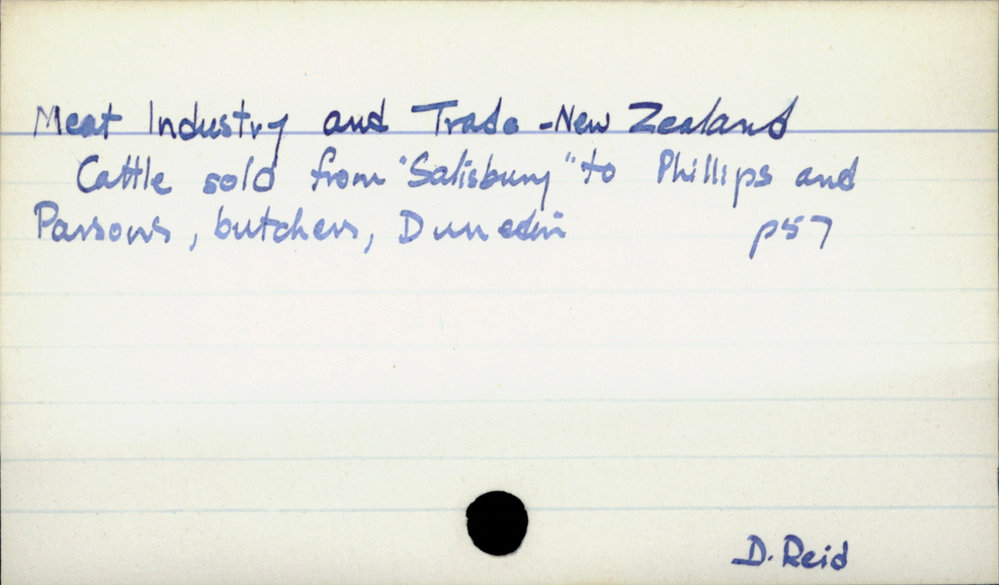 Meat Industry and Trade - New Zealand
Cattle sold from "Salisbury" to Phillips and
Parsons, butchers, Dunedin p57
D. Reid